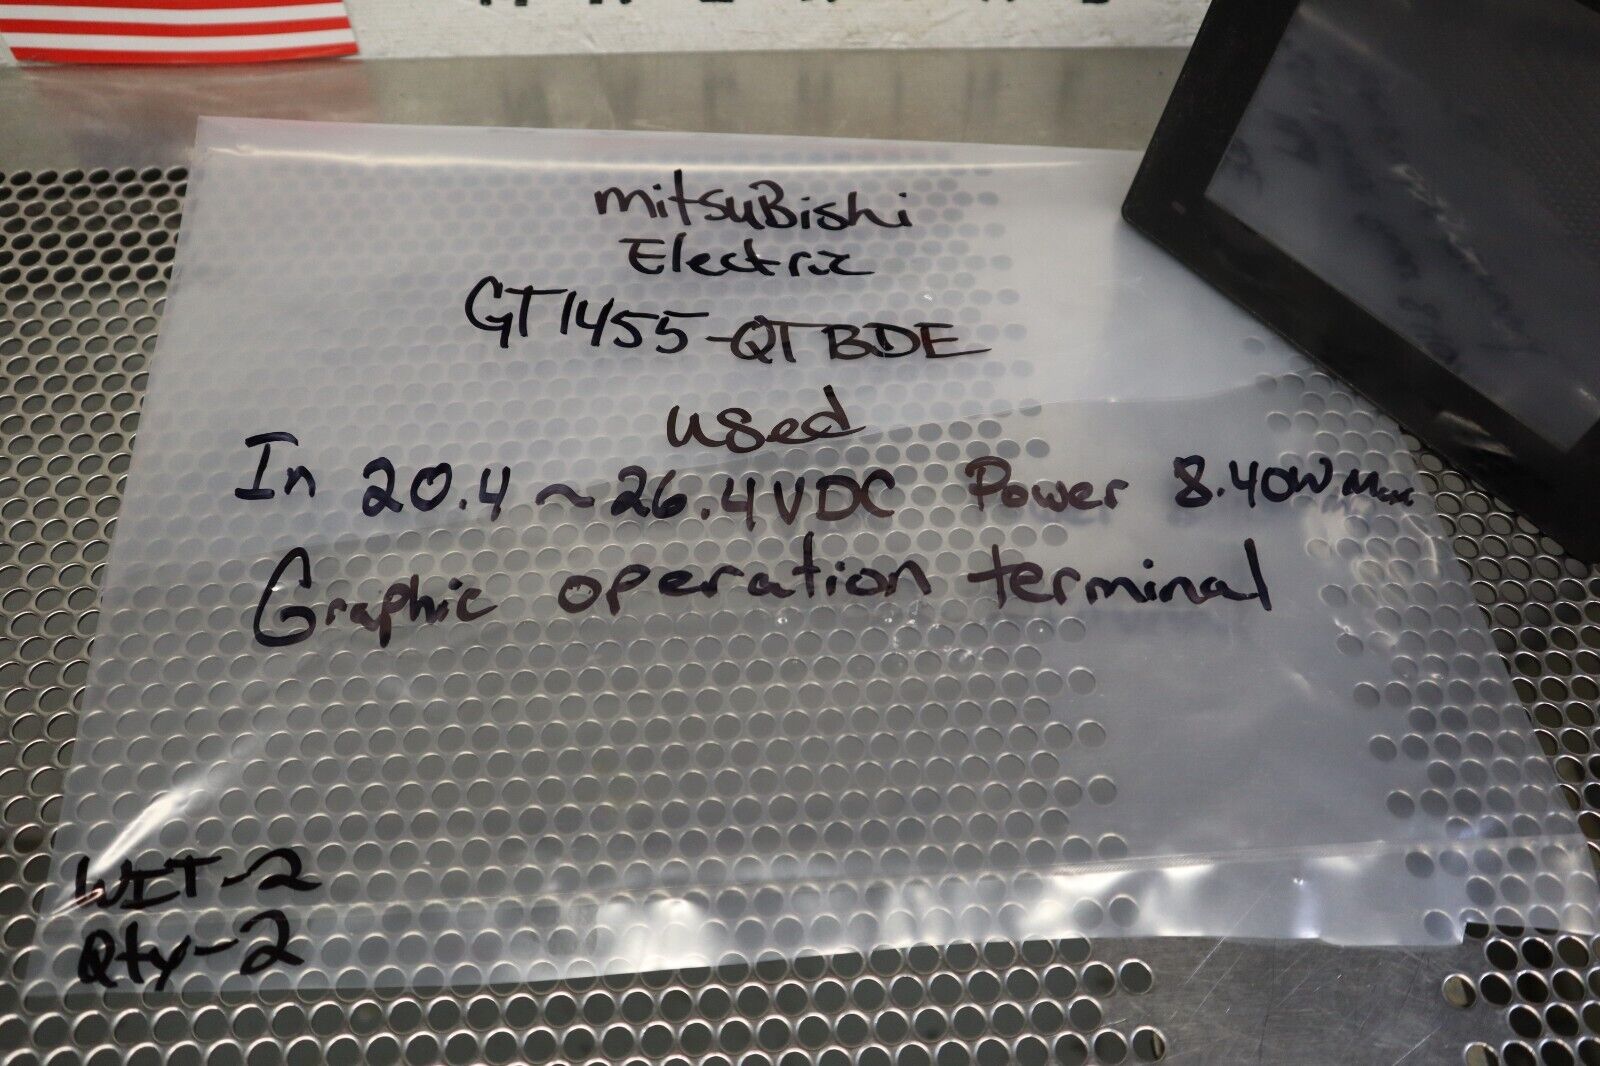 mitsuBishi
Electric
GT1455-QTBDE
used
In 20.4~26.4VDC Power 8.40W Max
Graphic operation terminal
WIT-2
Qty-2